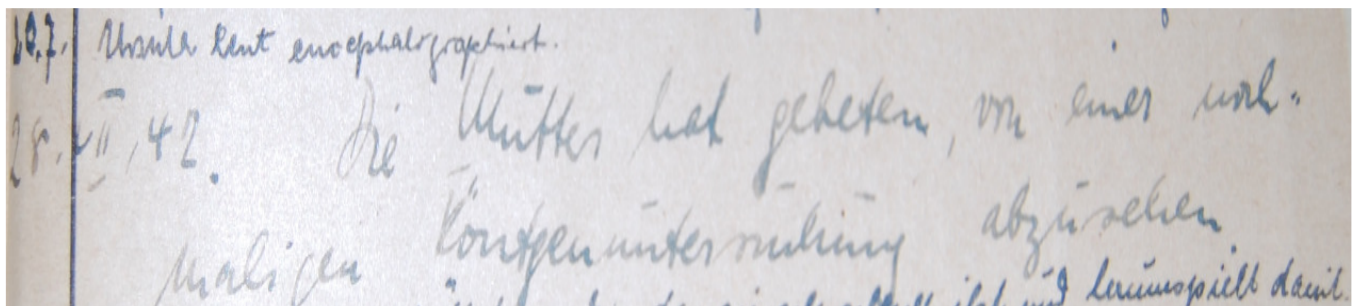 20.7. Ursula heut encephalographiert.
28. VII. 42. Die Mutter hat gebeten, von einer noch-
maligen Röntgenuntersuchung abzusehen
und herumspielt damit